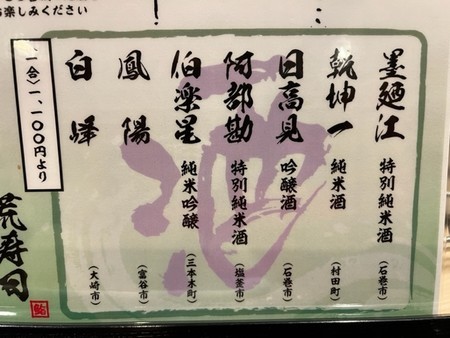 お楽しみください
墨廼江 特別純米酒 (石巻市)
乾坤一 純米酒 (村田町)
日高見 吟醸酒 (石巻市)
阿部勘 特別純米酒 (塩釜市)
伯楽星 純米吟醸 (三本木町)
鳳陽 (富谷市)
白峰 (大崎市)
(一合)一、一〇〇円より
寿司
鮨
酒